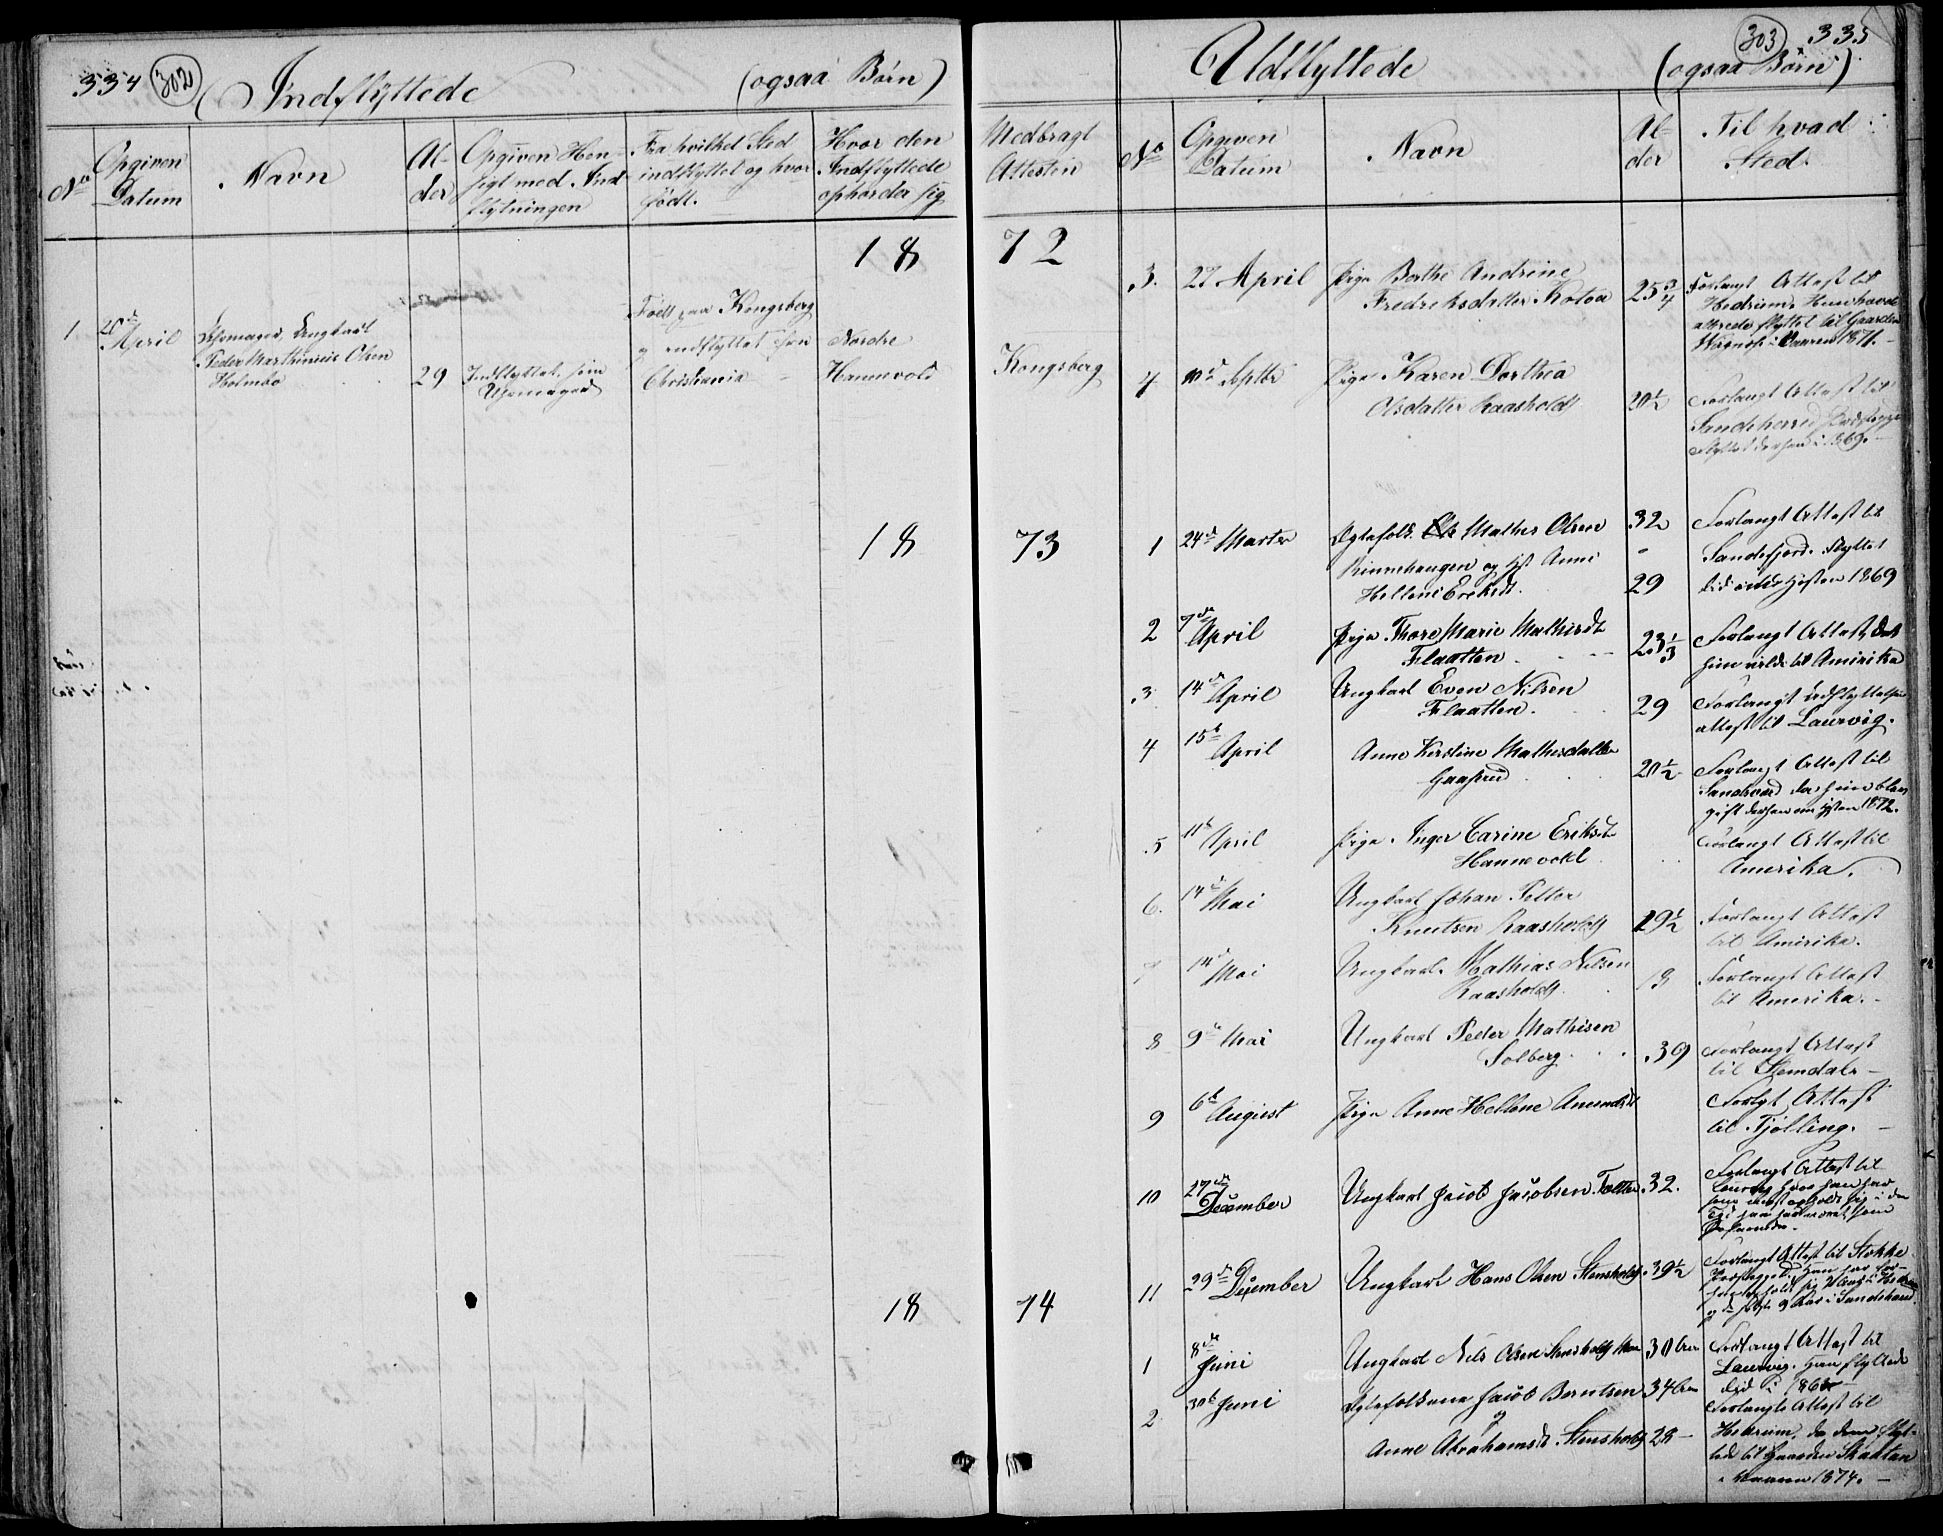 334 302
Indflyttede (ogsaa Børn)
No
Opgiven Datum
Navn
Alder
Opgiven Hensigt med Indflytningen
Fra hvilket Sted indflyttet og hvor født.
Hvor den Indflyttede opholder sig
Medbragt Attesten
18 72
1
20de April
Ungkarl
Peder Marthinius Olsen
Holmbo
29
Indflyttet som
Født paa Kongsberg
og indflyttet fra
Christiania
Nordre
Hannevold
Kongsberg
18 73
18 74
303 335
Udflyttede (ogsaa Børn)
No
Opgiven Datum
Navn
Alder
Til hvad Sted.
3. 27 April Pige Berthe Andrine
Fredriksdatter Kotoa
25 3/4
Forlangt Attest til
Hedrum. Hun havde
allerede flyttet til Gaarden
i Vaaren 1871.
4 10d Septbr Pige Karen Dorthea
Olsdatter Raasholdt
20 1/2
Forlangt Attest til
Sandeherred
flyttet derhen i 1869.
1 24de Marts Ægtefolk Mathis Olsen
Rinnehaugen og Anne
Hellene Eriksd.
32
29
Forlangt Attest til
Sandefjord. Flyttet
did Høsten 1869
2 7de April Pige Thore Marie Mathisdt
Flaatten
23 1/3
Forlangt Attest, da
hun vilde til Amerika
3 14de April Ungkarl Even Nilsen
Flaatten.
29
Forlangt Udflyttelses
attest til Laurvig.
4 15de April Anne Kirstine Mathisdatter
Gaaserud
20 1/2
Forlangt Attest til
Sandeherred da hun blev
gift derhen om Høsten 1872.
5 11te April Pige Inger Carine Eriksdt
Hannevold
Forlangt Attest til
Amerika.
6. 14de Mai Ungkarl Johan Petter
Knutsen Raasholdt
19 1/2
Forlangt Attest
til Amerika.
7 14de Mai Ungkarl Mathias Nilsen
Raasholdt.
19
Forlangt Attest
til Amerika.
8 9de Mai Ungkarl Peder Mathisen
Solberg
39
Forlangt Attest
til Slemdal
9 6te August Pige Anne Hellene Amundsdt
Forlgt Attest
til Tjølling.
10 27de December Ungkarl Jacob Jacobsen
32.
Forlangt Attest til
Laurvig hvor han har
opholdt sig i den
Tid han har været
11 29de December Ungkarl Hans Olsen Stensholdt
39 1/2
Forlangt Attest til Stokke
Præstegjeld. Han har
opholdt sig
i Sandeherred
1 8de Juni Ungkarl Nils Olsen Stensholdt
30 Aar
Forlangt Attest til
Laurvig. Han flyttede
did i
2 30te Juni Ægtefolkene Jacob Berntsen
og
Anne Abrahamsdt. Stensholdt
34 Aar
28
Forlangte Attest til
Hedrum, da de
til Gaarden Skaatan
i Vaaren 1874.